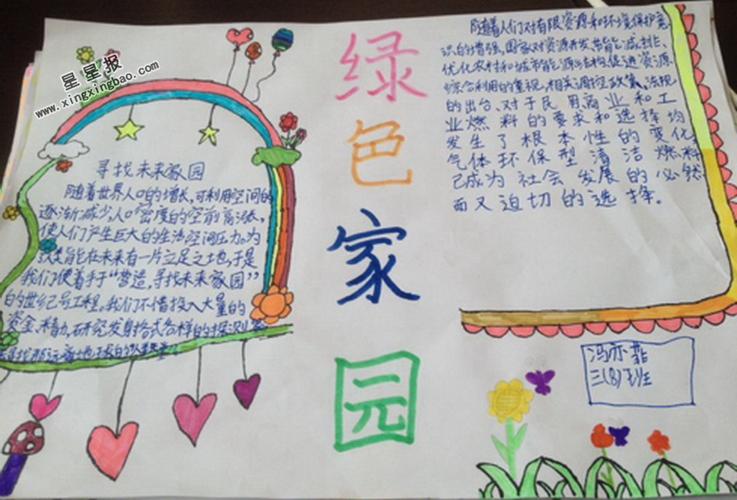 星星报
www.xingxingbao.com
绿
色
家
园
寻找未来家园
随着世界人口的增长,可利用空间的
逐渐减少人口密度的空前高涨,
使人们产生巨大的生活空间压力。为
人类能在未来有一片立足之土也,于是
我们便着手于“营造,寻找未来家园”
的世纪号工程,我们不惜投入大量的
资金、精力,研究发身格式各样的探测
随着人们对有限资源和环境保护意
识的增强,国家对资源开发、节能减排、
优化农村和城市能源结构促进资源
综合利用的重视,相关调控政策、法规
的出台、对于民用商业和工
业燃料的要求和选择均
发生了根本性的变化,
气体环保型清洁燃料
已成为社会发展的必然
而又迫切的选择。
冯亦菲
三(8)班